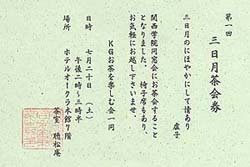 第一回
三日月茶会券
三日月のにほやかにして情あり
虚子
関西学院同窓会にお茶会すること
となりました。椅子席もあり、
お気軽にお越し下さいませ。
KGお茶を楽しむ会一同
日時 七月二十日(土)
午後二時~三時半
場所 ホテルオークラ本館7階
茶室 聴松庵